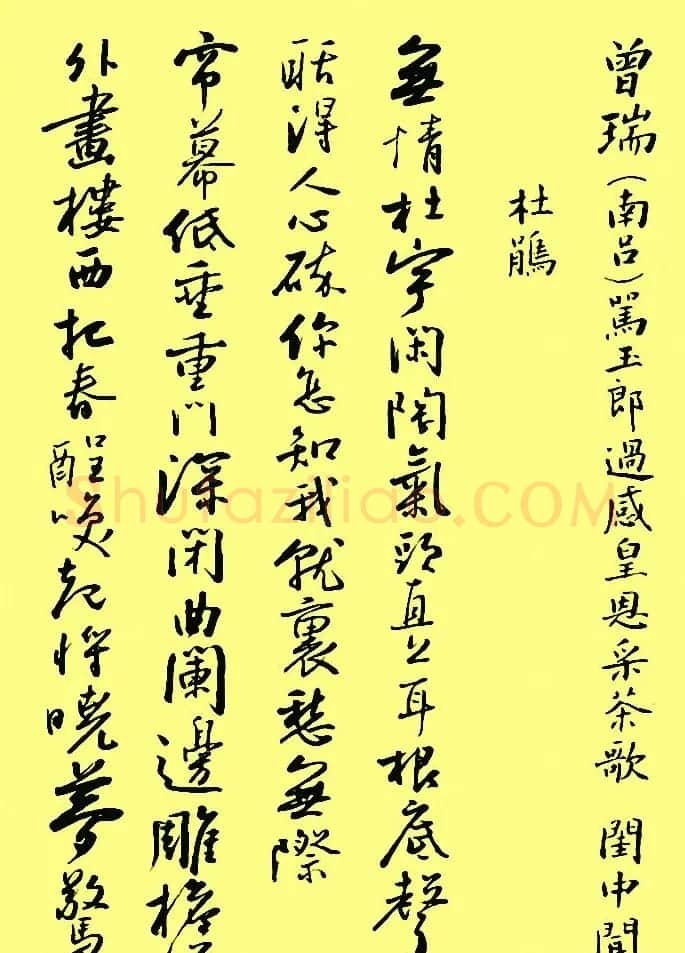 曾瑞(南吕)罵玉郎過感皇恩采茶歌 閨中聞
杜鵑
無情杜宇閑陶氣頭直上耳根底聲
聒得人心碎你怎知我就裏愁無際
帘幕低垂重門深閉曲闌邊雕檐
外畫樓西把春酲喚起將曉夢驚
Shufazhidao.COM